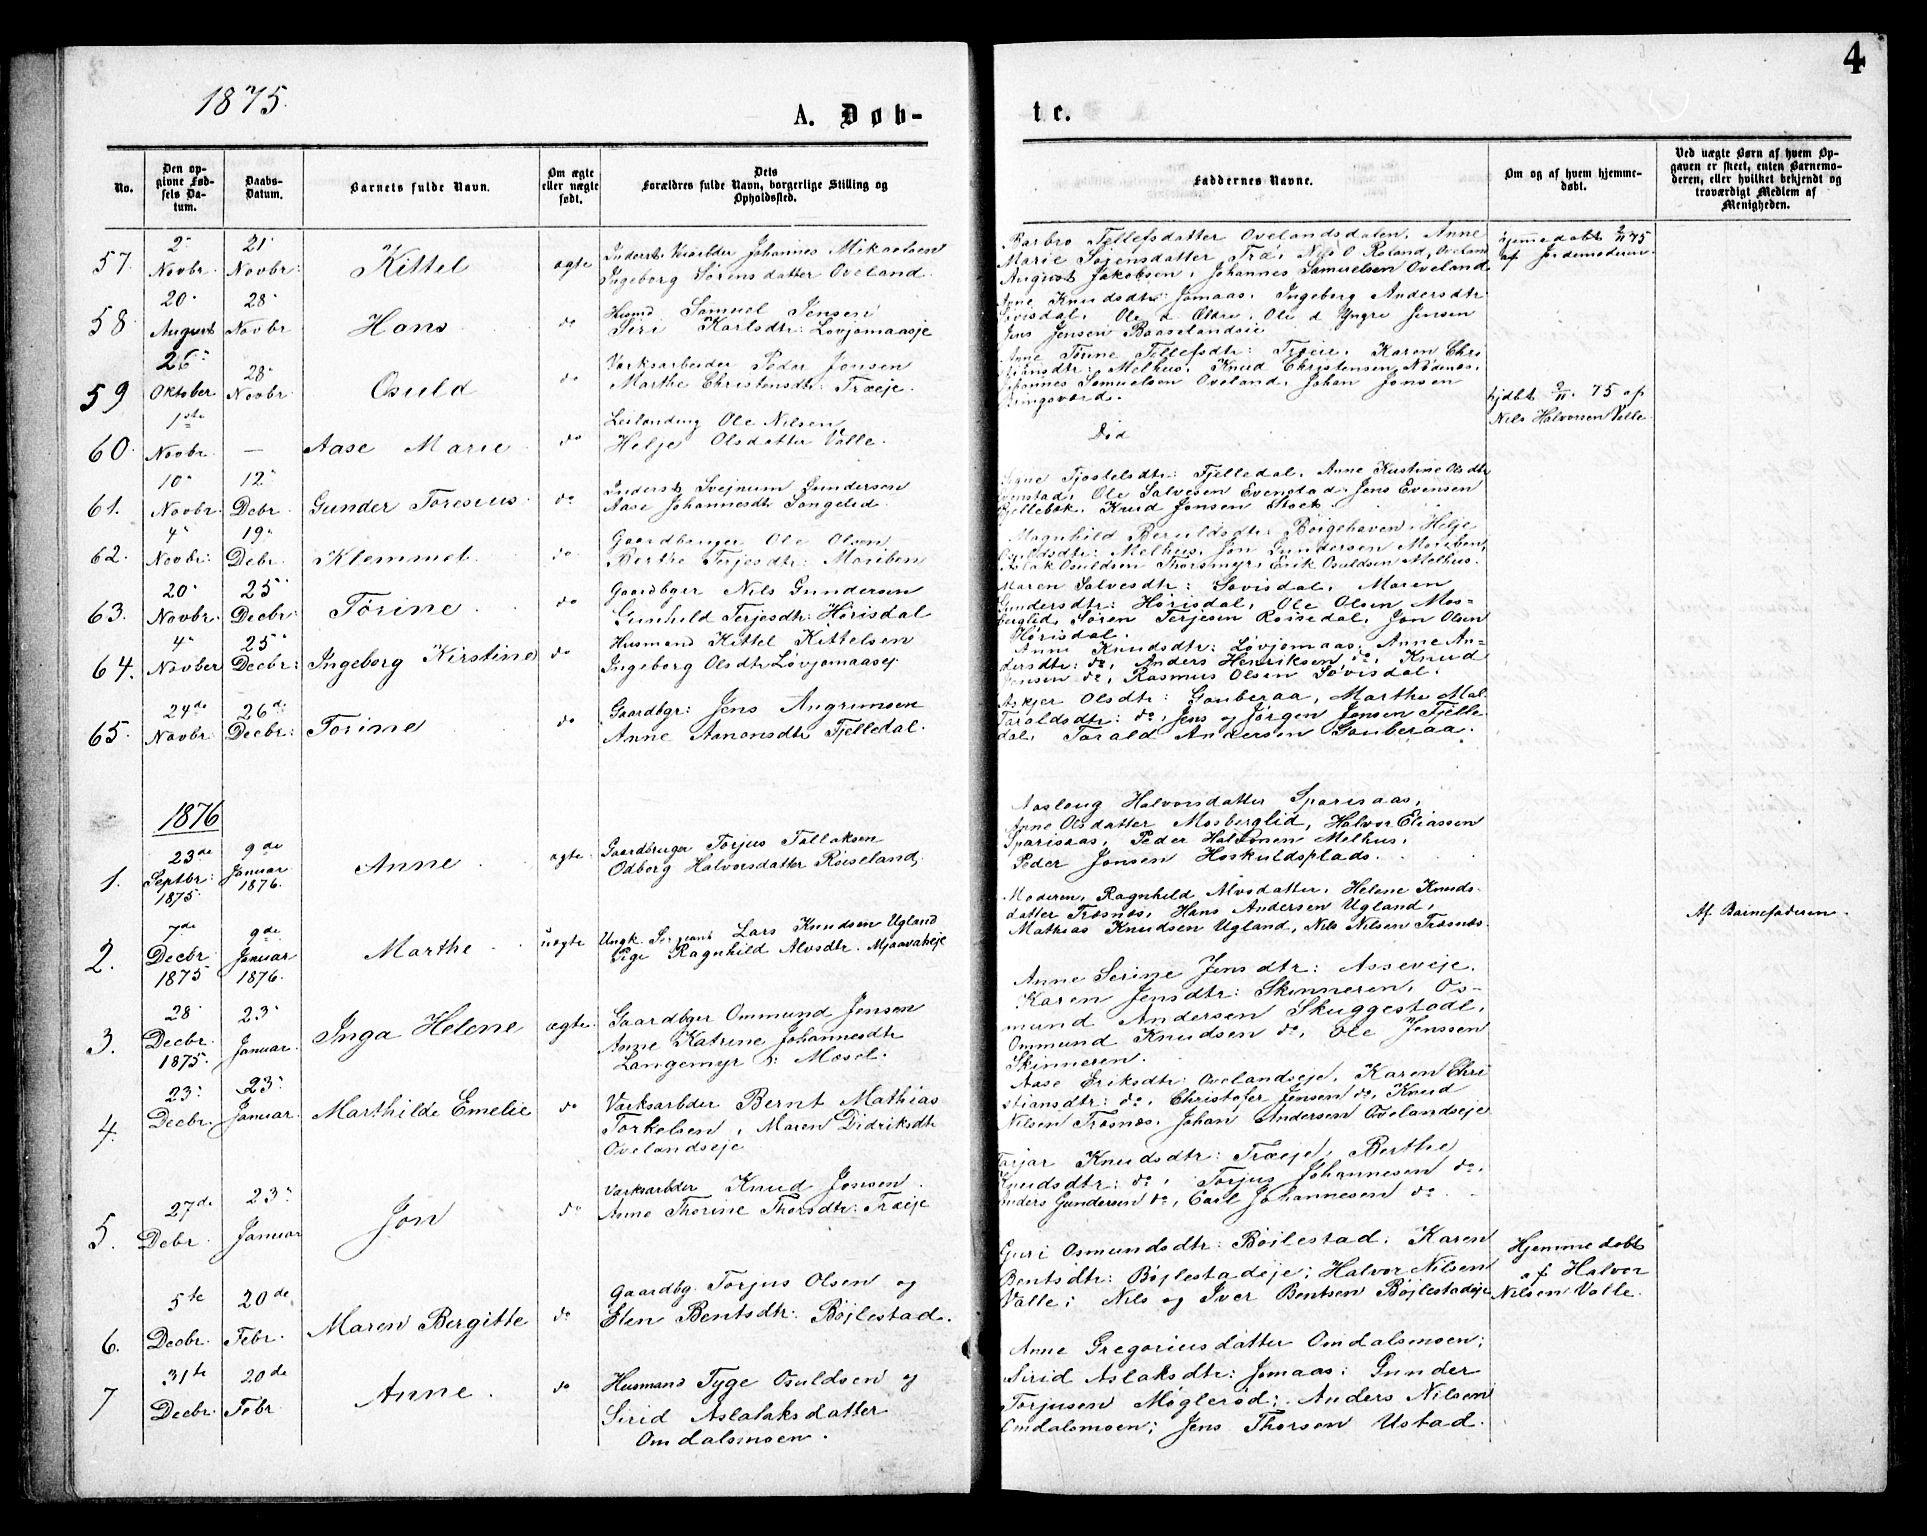 4
1875.
A. Døb-
te.
No.
Den op-
givne Fød-
sels Da-
tum.
Daabs-
Datum.
Barnets fulde Navn.
Om ægte
eller uægte
født.
Dets
Forældres fulde Navn, borgerlige Stilling og
Opholdssted.
Faddernes Navne.
Om og af hvem hjemme-
døbt.
Ved uægte Børn af hvem Op-
gaven er skeet, enten Barnemo-
deren, eller hvilket bekjendt og
troværdigt Medlem af
Menigheden.
57.
2
Novbr.
21
Novbr:
Kittel
ægte
Johannes Mikaelsen
Ingeborg Sørensdatter Oveland.
Barbro Tellefsdatter Ovelandsdalen. Anne
Marie Sørensdatter Træ, Nils O Roland, Oveland
August Jakobsen, Johannes Samuelsen Oveland
hjemmedøbt 2/11 75
af Jordemoderen.
58.
20
August
28
Novbr
Hans
do
Husmd. Samuel Jensen
Siri Karlsdtr: Løvjomaaseje
Anne Knudsdtr: Jomaas. Ingeborg Andersdtr
Sovisdal. Ole d. Ældre, Ole d Yngre Jensen
Jens Jensen Baaselandseie
59
26
Oktober
28
Novbr
Osuld
do
Værksarbeider Peder Jensen
Marthe Christensdtr: Træeje.
Anne Tørine Tellefsdtr: Træeie. Karen Chri
stiansdtr: Melhus. Knud Christensen Nødenæs.
Johannes Samuelsen Oveland. Johan Jensen
60.
1ste
Novbr.
—
Aase Marie
do
Leilending Ole Nilsen
Helje Olsdatter Valle.
Død
hjdbt 2/11. 75 af
Nils Halvorsen Valle
61.
10
Novbr.
12
Debr.
Gunder Toresius
do
Inderst Svejnum Gunderson
Aase Johannesdtr Songelid.
Signe Tjostelsdtr: Fjelledal. Anne Kirstine Olsdtr
Evenstad. Ole Salvesen Evenstad. Jens Evensen
Knud Jensen Stock.
62.
4
Novbr:
19
Debr.
Klemmet.
do
Gaardbruger Ole Olsen
Berthe Terjesdtr: Moniben
Magnhild Beruldsdtr: Bøigehaven. Helje
Osuldsdtr: Melhus. Jon Gundersen Moniben,
Aslak Osuldsen Thorsmyr, Erik Osuldsen Melhus.
63.
20
Novbr.
25
Decbr:
Tørine
do
Gaardbger Nils Gundersen
Gunhild Terjesdtr: Hørisdal
Maren Salvesdtr: Sovisdal. Maren
Gundersdtr: Hørisdal, Ole Olsen Mos-
berglid. Søren Terjesen Roisedal. Jon Olsen
Hørisdal.
64.
4
Novber
25
Decbr:
Ingeborg Kirstine
do
Husmand Kittel Kittelsen
Ingeborg Olsdtr: Løvjomaasej.
Anne Knudsdtr: Løvjomaas. Anne An-
dersdtr: do, Anders Henriksen do, Knud
Jensen do, Rasmus Olsen Sovisdal.
65.
24de
Novbr
26de
Decbr:
Torine
do
Gaardbgr: Jens Angrimsen
Anne Aanonsdtr Fjelledal.
Askjer Olsdtr: Gauberaa, Marthe Mal.
Taraldsdtr: do, Jens og Jørgen Jensen Fjelle
dal, Tarald Andersen Gauberaa.
1876
1.
23de
Septbr:
1875.
9de
Januar
1876.
Anne
ægte.
Gaardbruger Torjus Tallaksen
Odborg Halvorsdatter Røiseland.
Aaslaug Halvorsdatter Sparsaas,
Anne Olsdatter Mosberglid, Halvor Eliassen
Sparsaas, Peder Halvorsen Melhus.
Peder Jensen Hoskuldsplads.
2.
7de
Decbr
1875
9de
Januar
1876.
Marthe
uægte
Ungk. Sergeant Lars Knudsen Ugland
Pige Ragnhild Alvsdtr. Mjaavatseje
Moderen, Ragnhild Alvsdatter, Helene Knuds-
datter Træsnæs. Hans Andersen Ugland,
Mathias Knudsen Ugland, Nils Nilsen Træsnæs.
Af Barnefaderen.
3.
28
Decbr.
1875.
23
Januar.
Inga Helene
ægte.
Gaardbger Ommund Jensen
Anne Katrine Johannesdtr
Langemyr v: Mosel.
Anne Serine Jensdtr: Asseveje.
Karen Jensdtr: Skinneren, Os-
mund Andersen Skuggestadl,
Ommund Knudsen do, Ole Jenssen
Skinneren.
4.
23
Decbr.
23
Januar.
Marthilde Emelie
do
Værksarbder Bernt Mathias
Torkelsen, Maren Didriksdtr
Ovelandseje
Aase Eriksdtr: Ovelandseje. Karen Chri
stiansdtr: do, Christofer Jensen do, Knud
Nilsen Træsnæs. Johan Andersen Ovelandseje
5.
27de
Debr.
23
Januar
Jon
do
Værksarbder Knud Jensen.
Anne Thorine Thorsdtr: Træeje
Tarjar Knudsdtr: Træeje, Berthe
Knudsdtr: do, Torjus Johannesen do,
Anders Gundersen do, Carl Johannesen do
6.
5te
Decbr.
20de
Febr.
Maren Bergitte
do
Gaardbg. Torjus Olsen og
Elen Bentsdtr: Bøjlestad.
Guri Osmundsdtr: Bøjlestad; Karen
Bentsdtr: Bøjlestadeje; Halvor Nilsen
Valle; Nils og Iver Bentsen Bøjlestadeje
Hjemmedøbt
af Halvor
Nilsen Valle.
7
31te
Decbr.
20de
Febr.
Anne.
do
Husmand Tyge Osuldsen og
Sirid Aslalaksdatter
Omdalsmoen.
Anne Gregoriusdatter Omdalsmoen;
Sirid Aslaksdtr: Jomaas; Gunder
Torjusen Møglerød; Anders Nilsen
Omdalsmoen; Jens Thorsen Ustad.